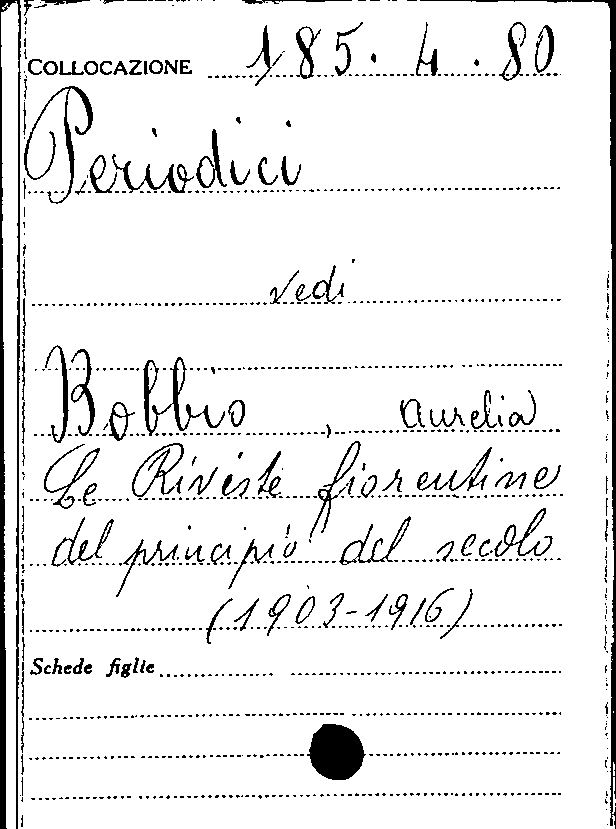 COLLOCAZIONE 185.4.80
Periodici
vedi
Bobbio, Aurelia
Le Riviste fiorentine
del principio del secolo
(1903-1916)
Schede figlie